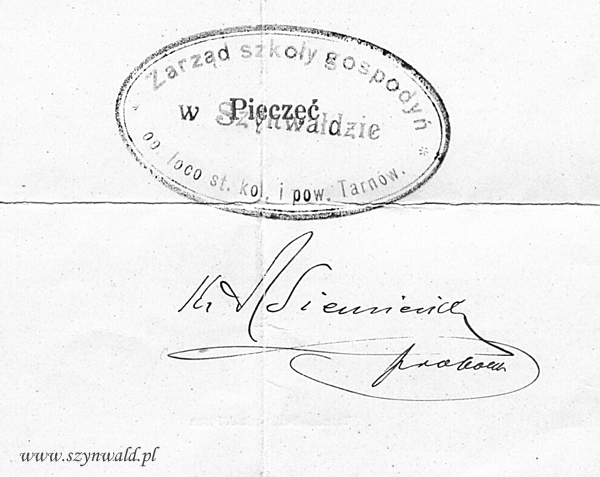 * Zarząd szkoły gospodyń *
w Szynwałdzie
Pieczęć
oo. loco st. kol. i pow. Tarnów.
Ks. A Siemieński
proboszcz
www.szynwald.pl